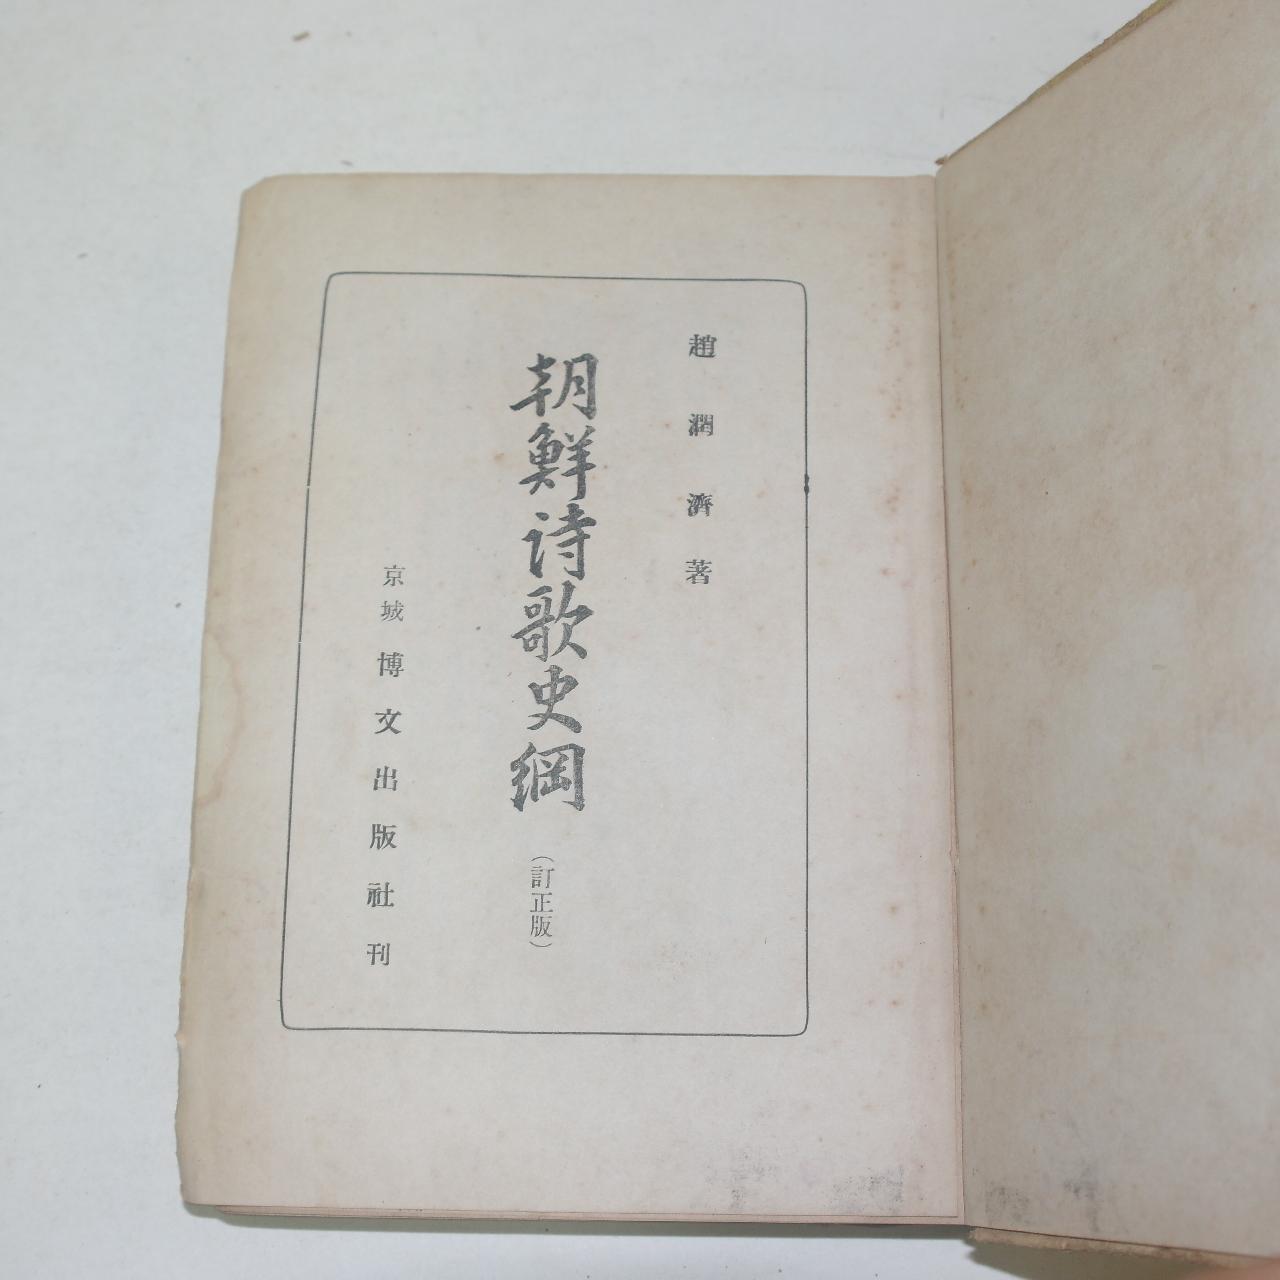 趙潤濟著
朝鮮詩歌史綱（訂正版）
京城 博文出版社刊